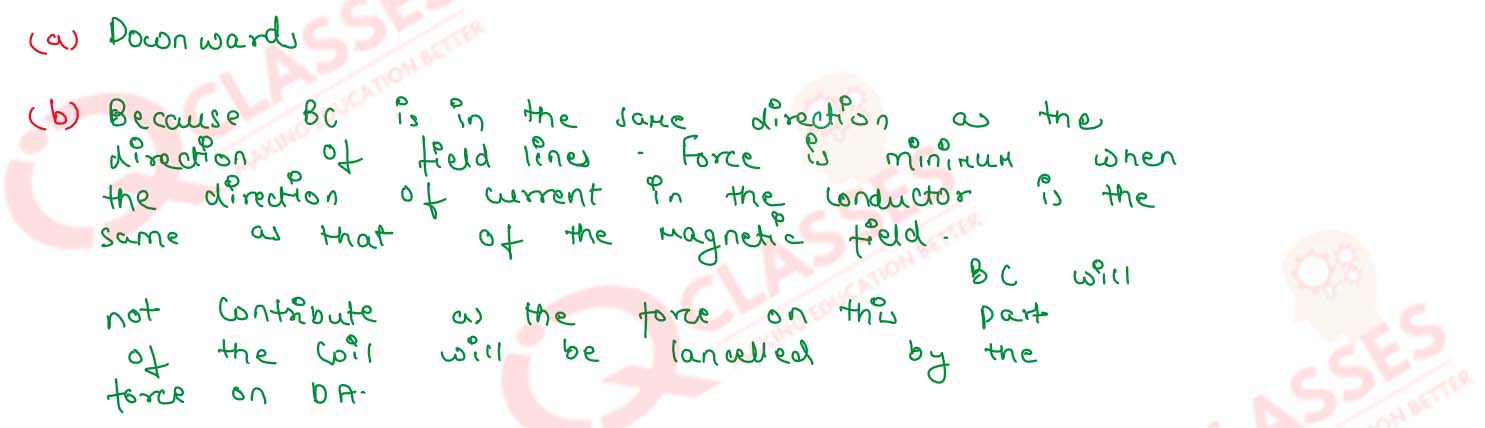 (a) Downwards
(b) Because BC is in the same direction as the
direction of field lines. Force is minimum when
the direction of current in the conductor is the
same as that of the magnetic field.
BC will
not contribute as the force on this part
of the coil will be cancelled by the
force on DA.
CLASSES
MAKING EDUCATION BETTER
CLASSES
MAKING EDUCATION BETTER
ASSES
ON BETTER